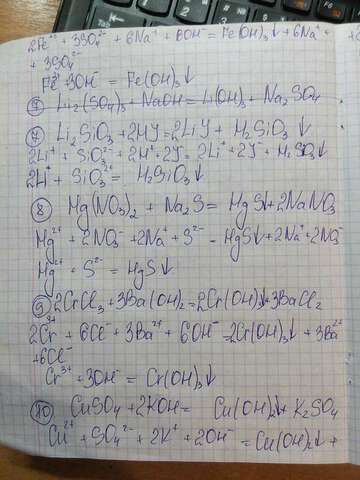 2Fe³⁺ + 3SO₄²⁻ + 6Na⁺ + 6OH⁻ = Fe(OH)₃↓ + 6Na⁺ +
+ 3SO₄²⁻
Fe³⁺ + 3OH⁻ = Fe(OH)₃↓
⑦ Li₂(SO₄)₃ + NaOH = Li(OH) + Na₂SO₄
⑦ Li₂SiO₃ + 2HY = 2LiY + H₂SiO₃↓
2Li⁺ + SiO₃²⁻ + 2H⁺ + 2Y⁻ = 2Li⁺ + 2Y⁻ + H₂SiO₃↓
2H⁺ + SiO₃²⁻ = H₂SiO₃↓
⑧ Hg(NO₃)₂ + Na₂S = HgS↓ + 2NaNO₃
Hg²⁺ + 2NO₃⁻ + 2Na⁺ + S²⁻ = HgS↓ + 2Na⁺ + 2NO₃⁻
Hg²⁺ + S²⁻ = HgS↓
⑨ 2CrCl₃ + 3Ba(OH)₂ = 2Cr(OH)₃↓ + 3BaCl₂
2Cr³⁺ + 6Cl⁻ + 3Ba²⁺ + 6OH⁻ = 2Cr(OH)₃↓ + 3Ba²⁺
+ 6Cl⁻
Cr³⁺ + 3OH⁻ = Cr(OH)₃↓
⑩ CuSO₄ + 2KOH = Cu(OH)₂↓ + K₂SO₄
Cu²⁺ + SO₄²⁻ + 2K⁺ + 2OH⁻ = Cu(OH)₂↓ +